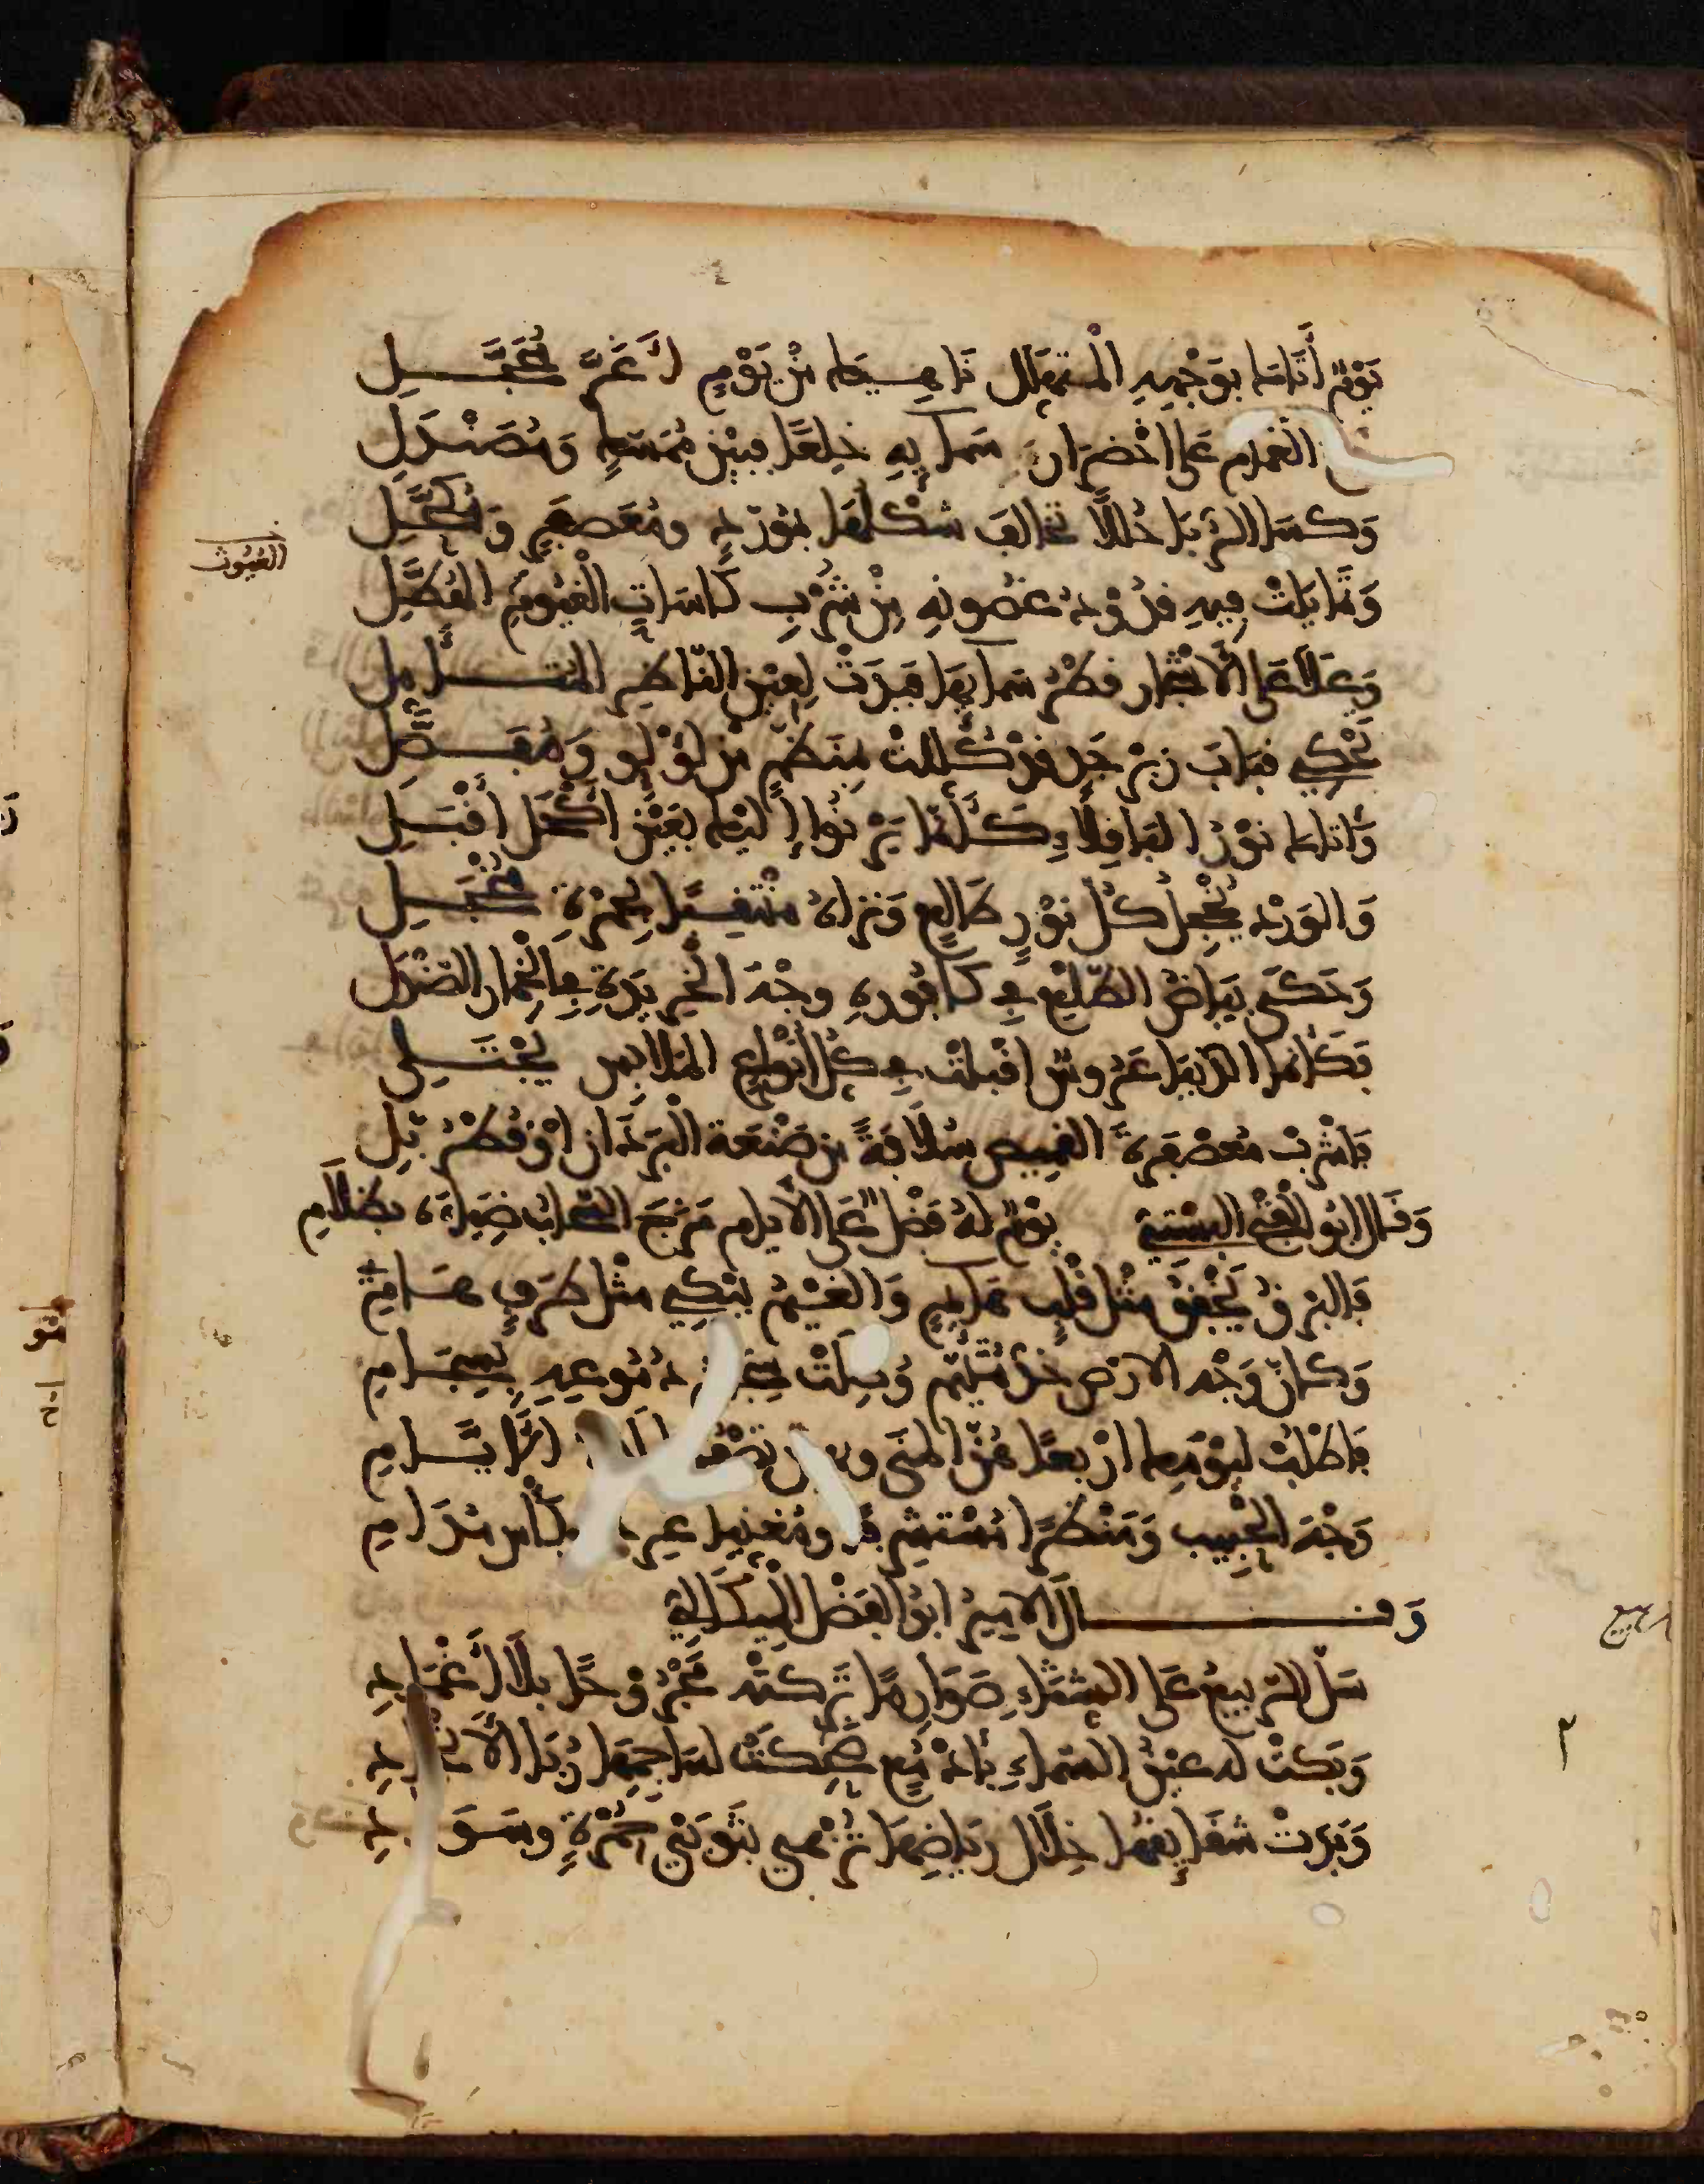 يَوْمٌ أَتَانَا بِوَجْهِهِ الْمُتَهَلِّل نَاهِيكَ مِنْ يَوْمٍ أَغَرَّ مُحَجَّلِ
الغمام على اخْضرار سمائه خِلعًا فبين مُمَسَّكٍ وَمُصَنْدَلِ
وَكسا الرُّبَا حُلَلًا تخالف شكلها بموَرّدٍ ومُعَصفَرٍ وَمُكَحَّلِ
وَتمَايلَتْ فيه قدُودُ غصُونِهِ مِنْ شُرْبِ كَاسَاتِ الْغيُومِ الهُطَّلِ
الغيُوث
وَعَلَا عَلَى الأشْجار قطْرُ سمائها فبدَتْ لِعيْنِ النّاظرِ المُتأمِّلِ
تحْكي قبابَ زبرْجدٍ قدْ كُلّلتْ بمنظّمٍ من لؤلؤٍ وَمُفصَّلِ
وَأتاك نوْرُ الباقِلاءِ كَأنّما يَرْنُوا إليْكَ بعَيْنِ أكْحَل أقْبَلِ
وَالوَرْدُ يُخْجِلُ كُلّ نوْرٍ طَالعٍ وَتراهُ منتقِبًا بحُمْرَةِ مُخْجَلِ
وَحَكَى بيَاضُ الطّلْعِ في كَافُورهِ وجْهَ الخَريدَةِ في الْخِمارِ الصّنْدَلِ
فكأنما الدّنيَا عَرُوسٌ اقْبلتْ في كُلّ أنْواعِ الملابِسِ يجْتَلِي
فاشْربْ مُعصْفَرَةَ القميص سُلَافَةً من صَنْعَة البَرَدَانِ أوْ قُطْرُبُّلِ
وَقَال ابُو الْفتْحِ البُسْتيّ يوْمٌ لهُ فَضْلٌ عَلى الأيام مَزَجَ السّحابُ ضِيَاءَهُ بظَلَامِ
فَالبرْقُ يَخْفِقُ مثْلُ قلْبٍ هَائمٍ وَالغَيْمُ يبْكِي مثْل طَرْفٍ هامِ
وَكأنّ وَجْه الارْضِ خَدُّ مُتَيّمٍ وُصِلَتْ دُمُوعِهِ بِسِجَامِ
فاطْلبْ ليَوْمِك ارْبعًا هُنّ المنَى الأيَّامِ
وَجْهَ الحَبيب وَمَنْظَرًا مُسْتشْرِفًا ومُغنيا كأس مُدَامِ
وَقال الاميرُ ابُو الفَضْل الميكَالي
سَلّ الرّبيعُ عَلَى الشّتَاءِ صَوَارِمًا تَرَكتْه مَجْرُوحًا بلا إغْمَادِ
وَبَكتْ له عيْنُ السّماءِ بأدْمُعٍ ضَحِكتْ لسَاجِمِهَا رُبَا الأنْجَادِ
وَبدَتْ شقائقها خِلَالَ رِيَاضِهَا تُزْهى بثَوبَيْ حُمْرَةٍ وسَوَادِ
ربيع
٢